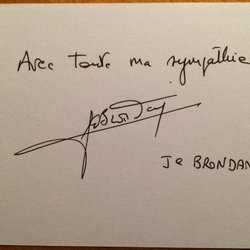 Avec toute ma sympathie
Ja BRONDAN